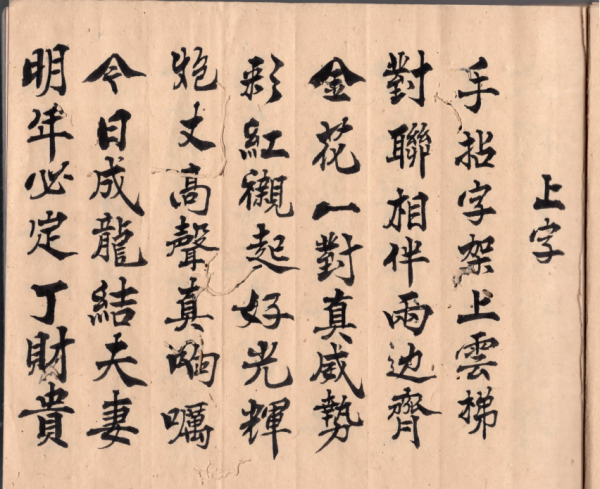 上字
手拈字架上雲梯
對聯相伴兩边齊
金花一對真威勢
彩紅襯起好光輝
炮丈高聲真响嘱
今日成龍結夫妻
明年必定丁財貴